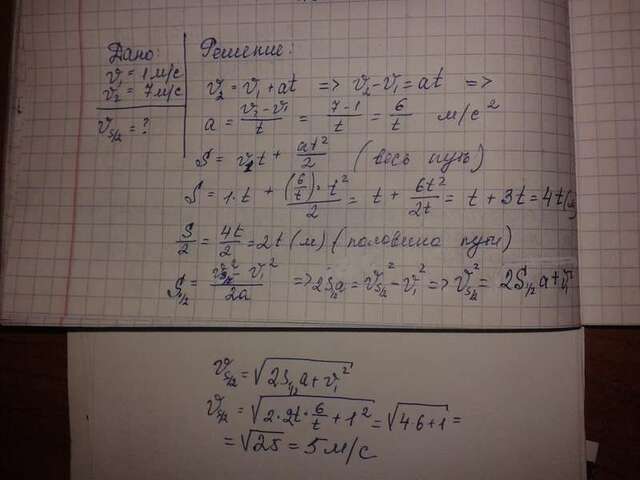 Дано:
v₁ = 1 м/с
v₂ = 7 м/с
v_{s/2} = ?
Решение:
v₂ = v₁ + at => v₂ - v₁ = at =>
a = (v₂ - v₁)/t = (7 - 1)/t = 6/t м/с²
S = v₁t + at²/2 (весь путь)
S = 1·t + ((6/t)·t²)/2 = t + 6t²/2t = t + 3t = 4t(м)
S/2 = 4t/2 = 2t (м) (половина пути)
S_{1/2} = (v_{s/2}² - v₁²)/2a => 2S_{1/2}a = v_{s/2}² - v₁² => v_{s/2}² = 2S_{1/2}a + v₁²
v_{s/2} = √(2S_{1/2}a + v₁²)
v_{s/2} = √(2·2t·6/t + 1²) = √(4·6+1) =
= √25 = 5 м/с